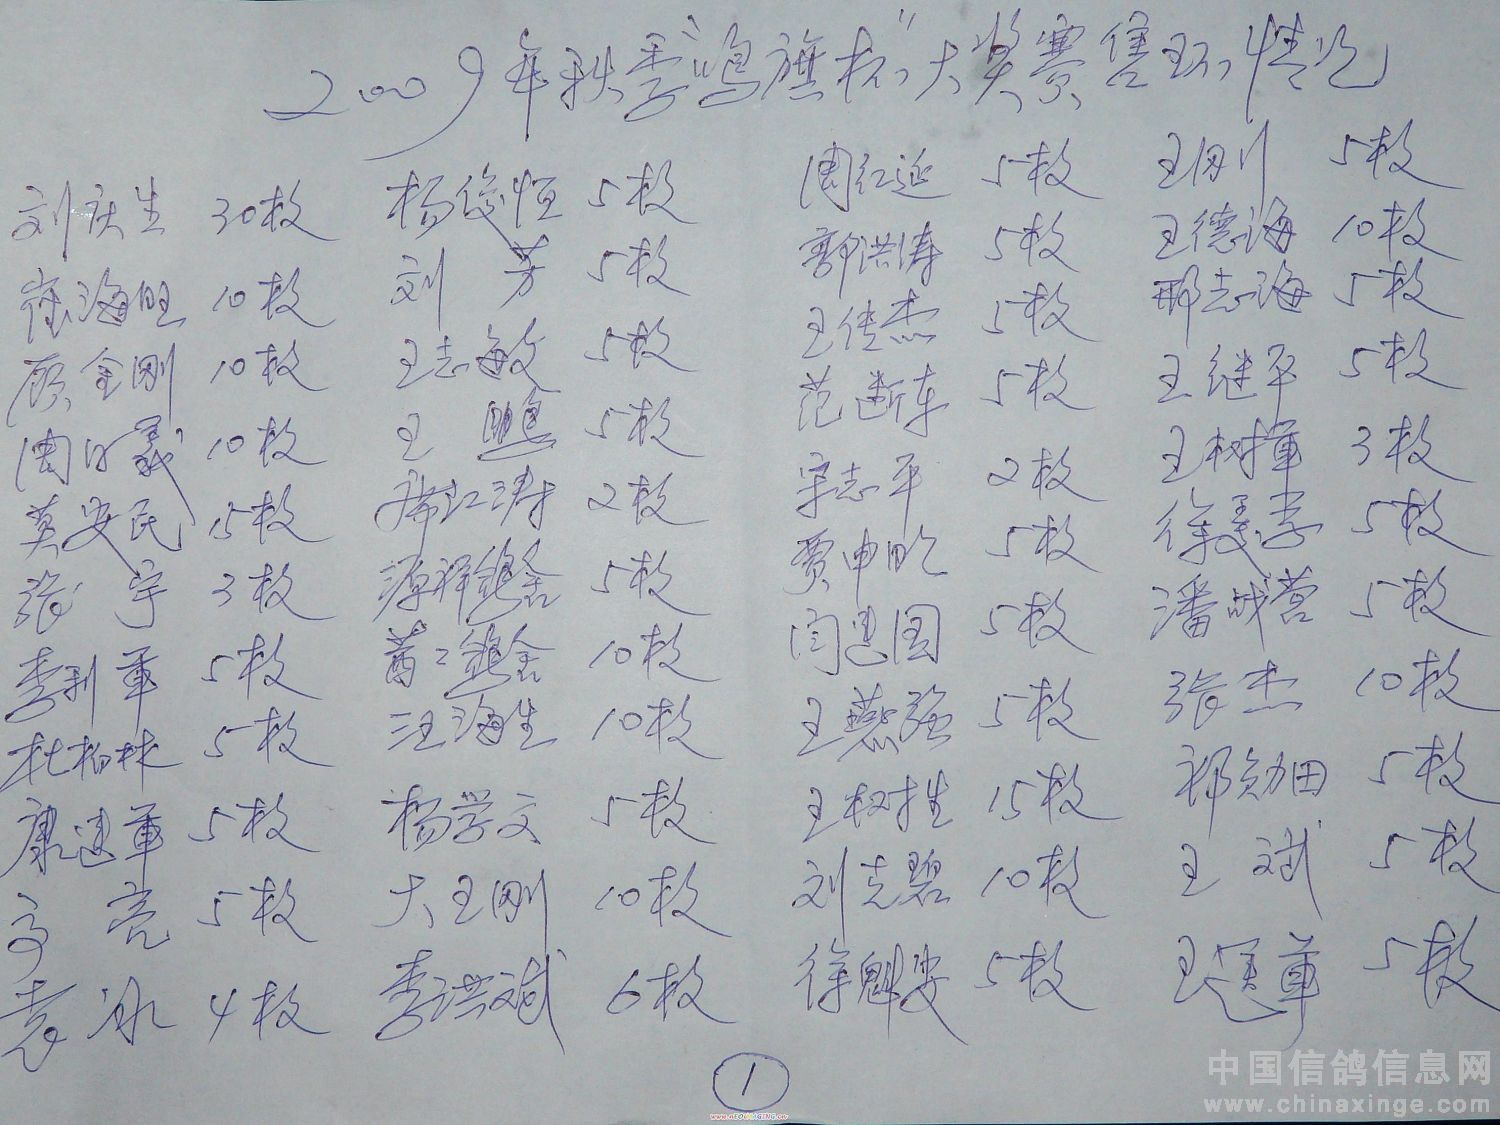 2009年秋季"鸣旗杯"大奖赛售环情况
刘庆生 30枚
崔海旺 10枚
顾金刚 10枚
周日義 10枚
莫安民 15枚
张宇 3枚
李利軍 5枚
杜柏林 5枚
康建軍 5枚
高亮 5枚
袁冰 4枚
杨俊恒 5枚
刘芳 5枚
王志敏 5枚
王鵰 5枚
2枚
源祥鸽舍 5枚
鸽舍 10枚
汪海生 10枚
杨学文 5枚
大王刚 10枚
李洪斌 6枚
周红延 5枚
郭洪涛 5枚
王传杰 5枚
范建东 5枚
宋志平 2枚
贾申 5枚
闫建国 5枚
王燕强 5枚
王树生 15枚
刘克碧 10枚
徐魁安 5枚
王刚 5枚
王德海 10枚
邢志海 5枚
王继平 5枚
王树軍 3枚
徐美李 5枚
潘成营 5枚
张杰 10枚
祁勋田 5枚
王斌 5枚
王军 5枚
1
中国信鸽信息网
www.chinaxinge.com